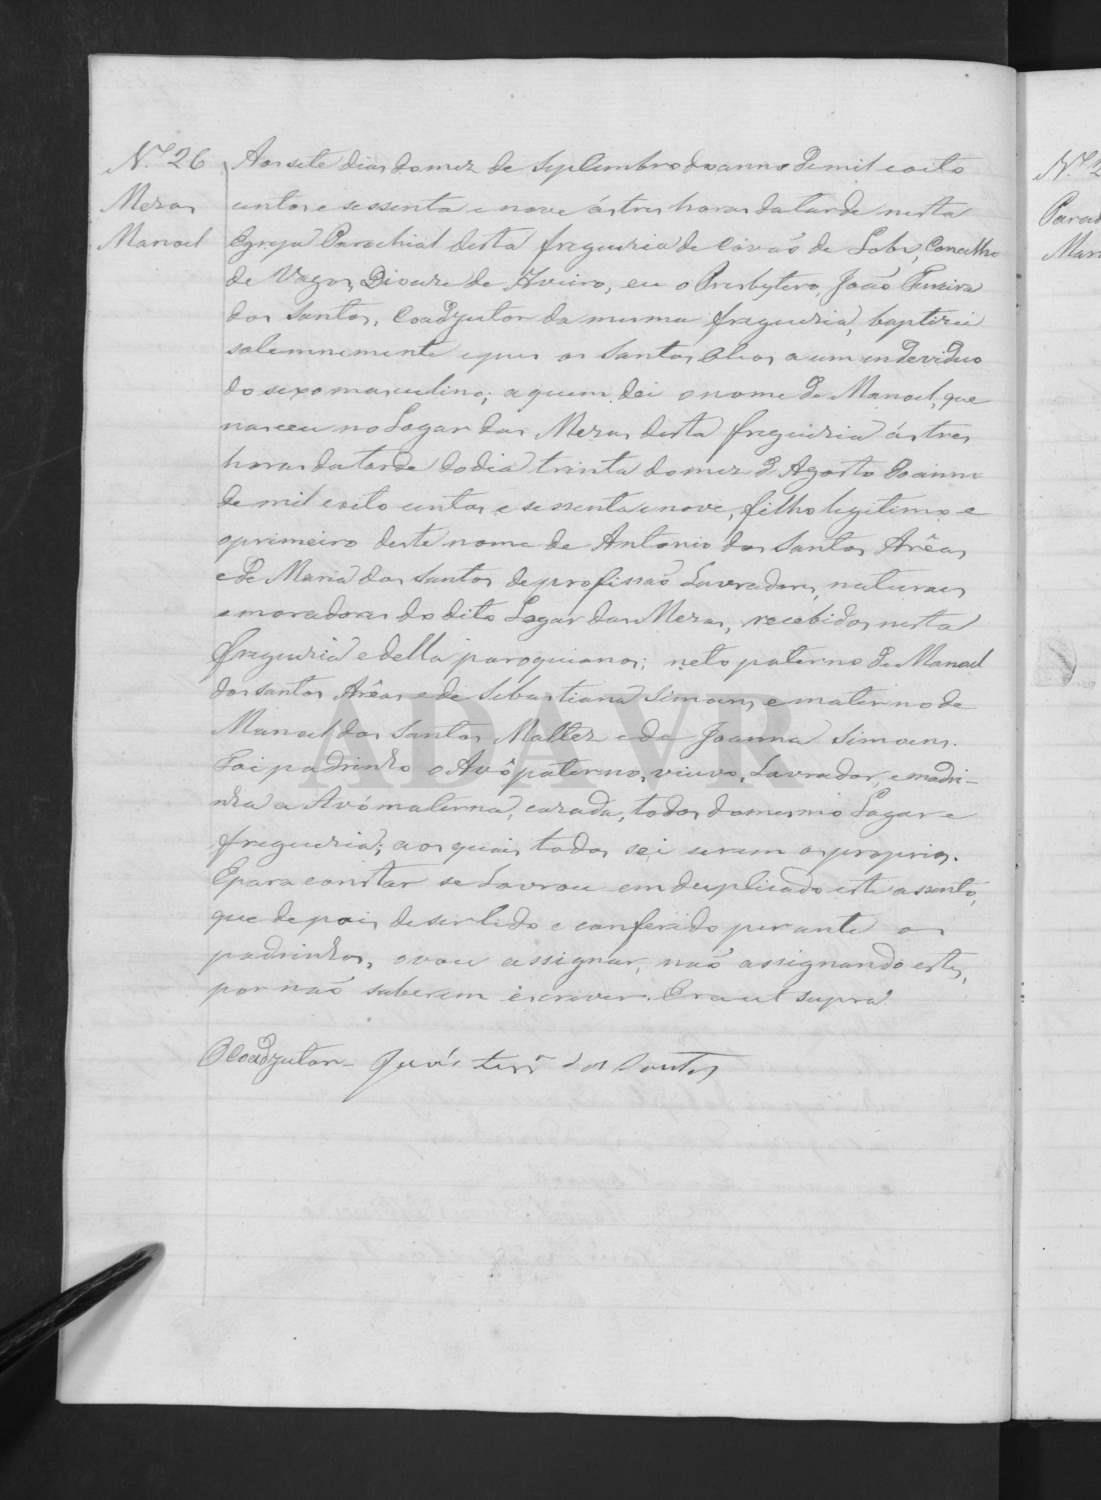 N.º 26
Mezas
Manoel
Aos sete dias do mez de Septembro do anno de mil e oito
centos e sessenta e nove ás tres horas da tarde nesta
Egreja Parochial desta freguezia de Covão de Lobo, Concelho
de Vagos, Diocese de Aveiro, eu o Presbytero, João Ferreira
dos Santos, Coadjutor da mesma freguezia, baptizei
solemnemente e puz os Santos Oleos a um individuo
do sexo masculino; a quem dei o nome de Manoel, que
nasceu no Logar das Mezas desta freguezia ás tres
horas da tarde do dia trinta do mez d'Agosto do anno
de mil e oito centos e sessenta e nove, filho legitimo e
o primeiro deste nome de Antonio dos Santos Arêas
e de Maria dos Santos de profissão Lavradores, naturaes
e moradores do dito Logar das Mezas, recebidos nesta
freguezia e della paroquianos; neto paterno de Manoel
dos Santos Arêas e de Sebastiana Simoens, e materno de
Manoel dos Santos Maltez e de Joanna Simoens.
Foi padrinho o Avô paterno, viuvo, Lavrador, e madri-
nha a Avó materna, cazada, todos do mesmo Logar e
freguezia; aos quais todos sei serem os proprios.
E para constar se Lavrou em duplicado este assento,
que depois de ser lido e conferido perante os
padrinhos, o vou assignar, não assignando estes,
por não saberem escrever. Era ut supra.
O Coadjutor João Ferrª dos Santos
ADAVR
N.º 2
Parad
Man